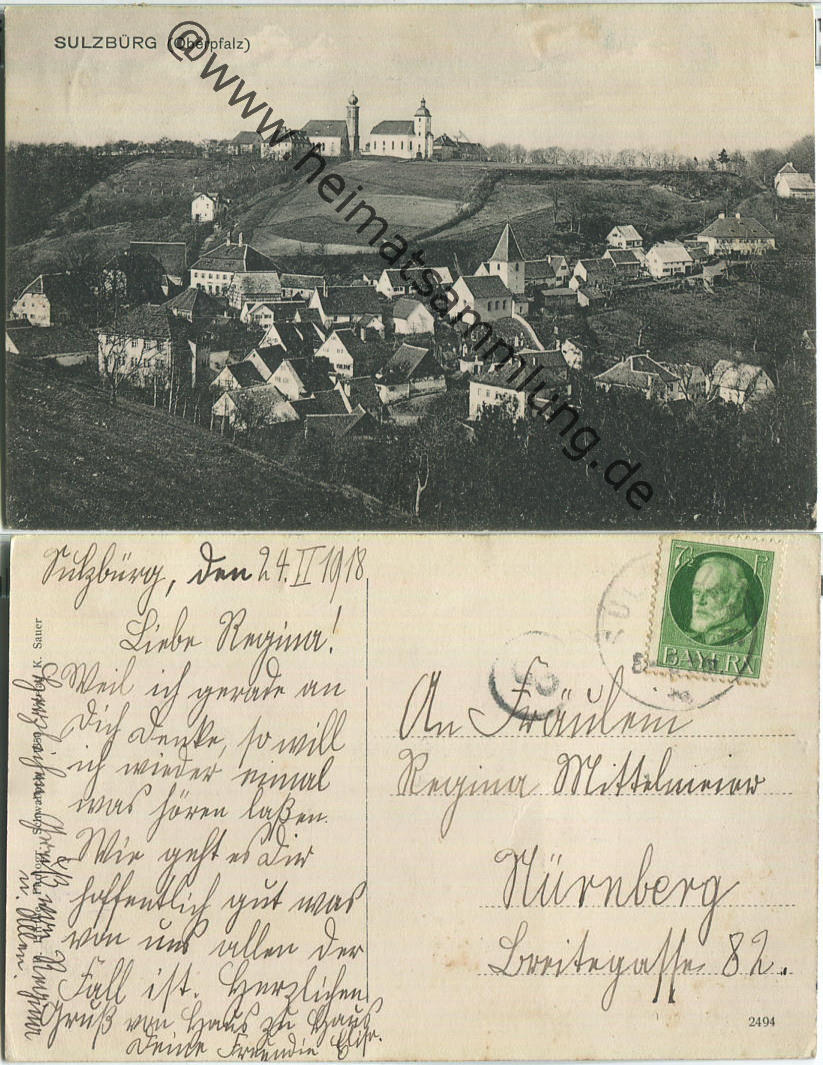 SULZBÜRG (Oberpfalz)
@www.heimatsammlung.de
Sulzbürg, den 24.II 1918
Liebe Regina!
Weil ich gerade an
Dich Denke, so will
ich wieder eimal
was hören laßen.
Wie geht es Dir
hoffentlich gut was
von uns allen der
Fall ist. Herzlichen
Gruß von Haus zu Haus
Deine Freundin
K. Sauer
7½ P
BAYERN
An Fräulein
Regina Mittelmeier
Nürnberg
Breitegasse 82.
2494